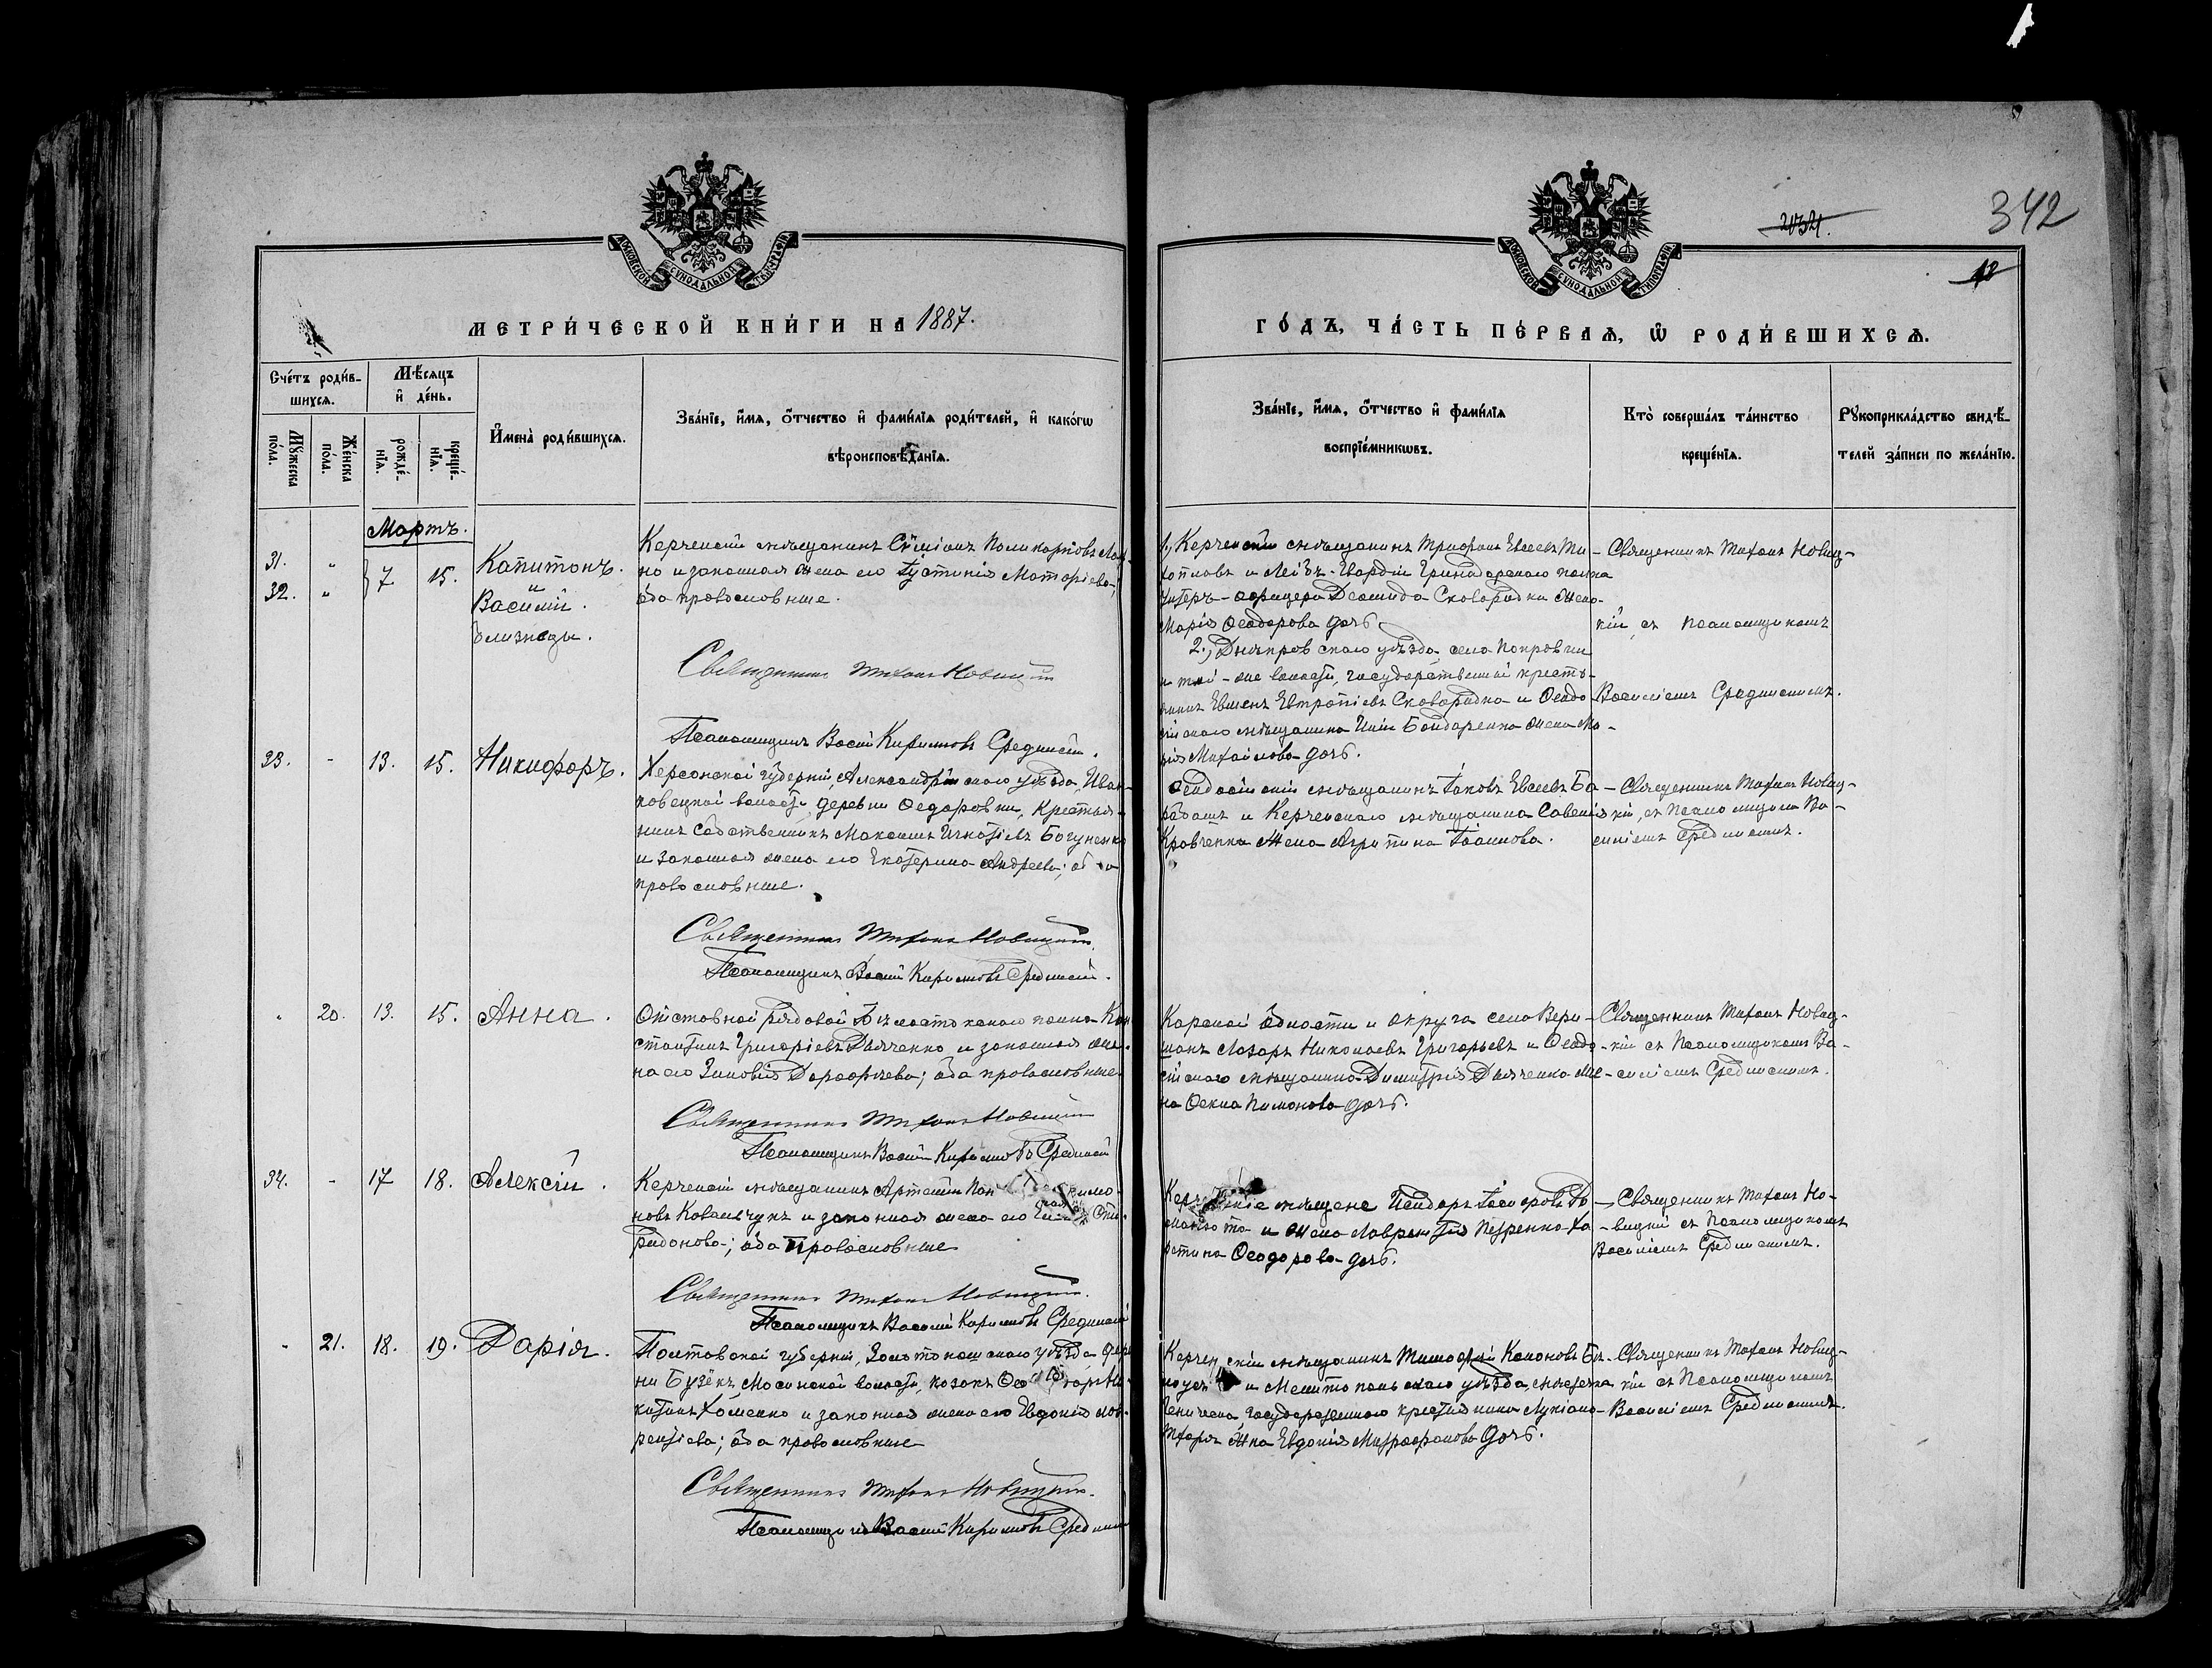 342
МЕТРИ́ЧЕСКОЙ КНИ́ГИ НА 1887.
ГО́ДЪ, ЧА́СТЬ ПЕ́РВАѦ, Ѿ РОДИ́ВШИХСѦ.
Сче́тъ роди́в-
шихсѧ.
Мѣсѧцъ
и де́нь.
Мꙋ́жеска по́ла.
Же́нска по́ла.
рожде́-
нїѧ.
креще́-
нїѧ.
Имена̀ роди́вшихсѧ.
Зва́нїе, и́мѧ, о́тчество и фами́лїѧ роди́телей, и како́гѡ
вѣроисповѣ́данїѧ.
Зва́нїе, и́мѧ, о́тчество и фами́лїѧ
воспрїе́мникѡвъ.
Кто̀ соверша́лъ та́инство
креще́нїѧ.
Рꙋкоприкла́дство свидѣ́-
телей за́писи по жела́нїю.
Мартъ.
31.
32.
7
15.
Капитонъ.
и
Василій.
близнецы.
Керченскій мѣщанинъ Сѵміонъ Поликарповъ
но и законная жена его Іустинія
оба православные.
Священникъ Тихонъ Новицкій
Псаломщикъ Василій Кириловъ Срединскій.
1, Керченскій мѣщанинъ Трифонъ Евсеевъ
и Лейбъ-Гвардіи Гринадерскаго полка
Унтеръ-офицера Деомида Сковородки жена
Марія Ѳеодорова дочь.
2., Днѣпровскаго уѣзда, села Покровки
и той-же волости, государственный кресть-
янинъ Евменъ Евтропіевъ Сковородка и Ѳеодо-
сійскаго мѣщанина Бондаренка жена Ма-
рія Михайлова дочь.
Священникъ Тихонъ Новиц-
кій съ Псаломщикомъ
Василіемъ Срединскимъ.
33.
13.
15.
Никифоръ.
Херсонской губерніи, Александрійскаго уѣзда, Иван-
ковецкой волости, деревни Ѳедоровки, Крестья-
нинъ собственникъ Максимъ Игнатіевъ Богуненко
и законная жена его Екатерина Андреева; оба
православные.
Священникъ Тихонъ Новицкій.
Псаломщикъ Василій Кириловъ Срединскій.
Ѳеодосійскій мѣщанинъ Іаковъ Евсеевъ Ба-
и Керченскаго мѣщанина Савелія
Кравченка жена Агрипина Іоаннова.
Священникъ Тихонъ Новиц-
кій, съ Псаломщикомъ Ва-
силіемъ Срединскимъ.
20.
13.
15.
Анна.
Отставной рядовой Бѣлостокскаго полка Кон-
стантинъ Григоріевъ Дьяченко и законная же-
на его Зиновія Дорофѣева; оба православные
Священникъ Тихонъ Новицкій
Псаломщикъ Василій Кириловъ Срединскій
Карской области и округа села Вери-
шанъ Лазарь Николаевъ Григорьевъ и Ѳеодо-
сійскаго мѣщанина Димитрія Дьяченка же-
на Ѳекла Пимонова дочь.
Священникъ Тихонъ Новиц-
кій съ Псаломщикомъ Ва-
силіемъ Срединскимъ.
34.
17
18.
Алексій.
Керченскій мѣщанинъ Артемій
новъ Ковальчукъ и законная жена его Спи-
ридонова; оба Православные
Священникъ Тихонъ Новицкій.
Псаломщикъ Василій Кириловъ Срединскій
мѣщане Исидоръ
и жена Лаврентія Петренко Ха-
ритина Ѳеодорова дочь.
Священникъ Тихонъ Но-
вицкій съ Псаломщикомъ
Василіемъ Срединскимъ.
21.
18.
19.
Дарія.
Полтавской губерніи, Золотоношскаго уѣзда дере-
ни Бузёкъ, волости, козакъ
Хоменко и законная жена его Евдокія Лав-
рентіева; оба православные
Священникъ Тихонъ Новицкій.
Псаломщикъ Василій Кириловъ Срединскій
Керченскій мѣщанинъ Тимофей Кононовъ Бѣ-
лоусъ и Мелитопольскаго уѣзда, мѣстечка
Геническа, государственнаго крестьянина Лукіана
жена Евдокія Митрофанова дочь.
Священникъ Тихонъ Новиц-
кій съ Псаломщикомъ
Василіемъ Срединскимъ.